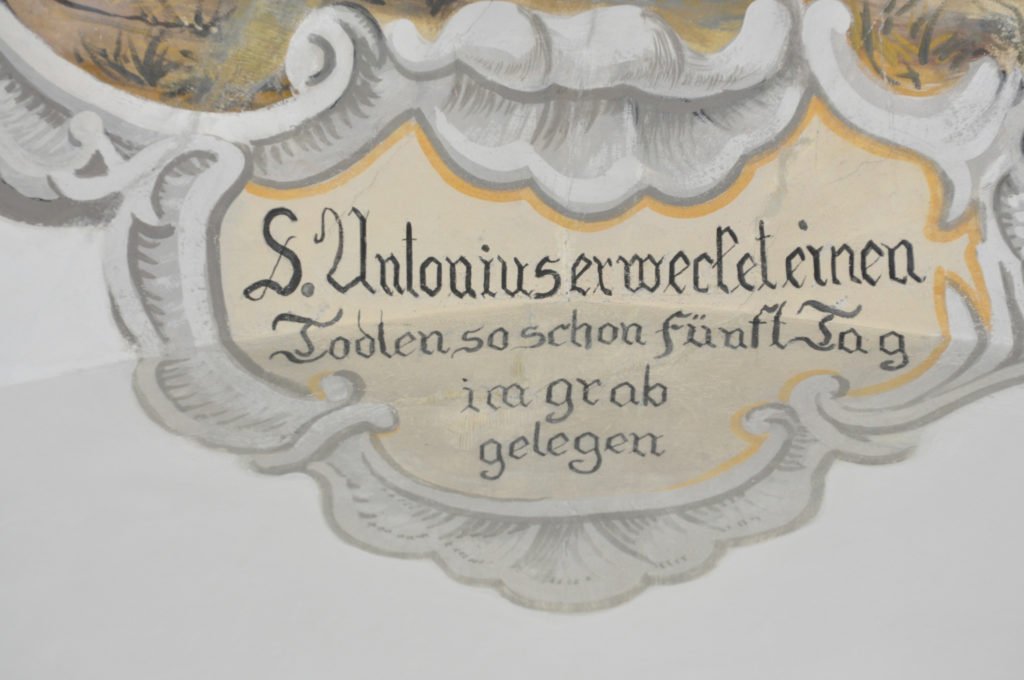 S. Antonius erwecket einen
Todten so schon fünft Tag
im grab
gelegen